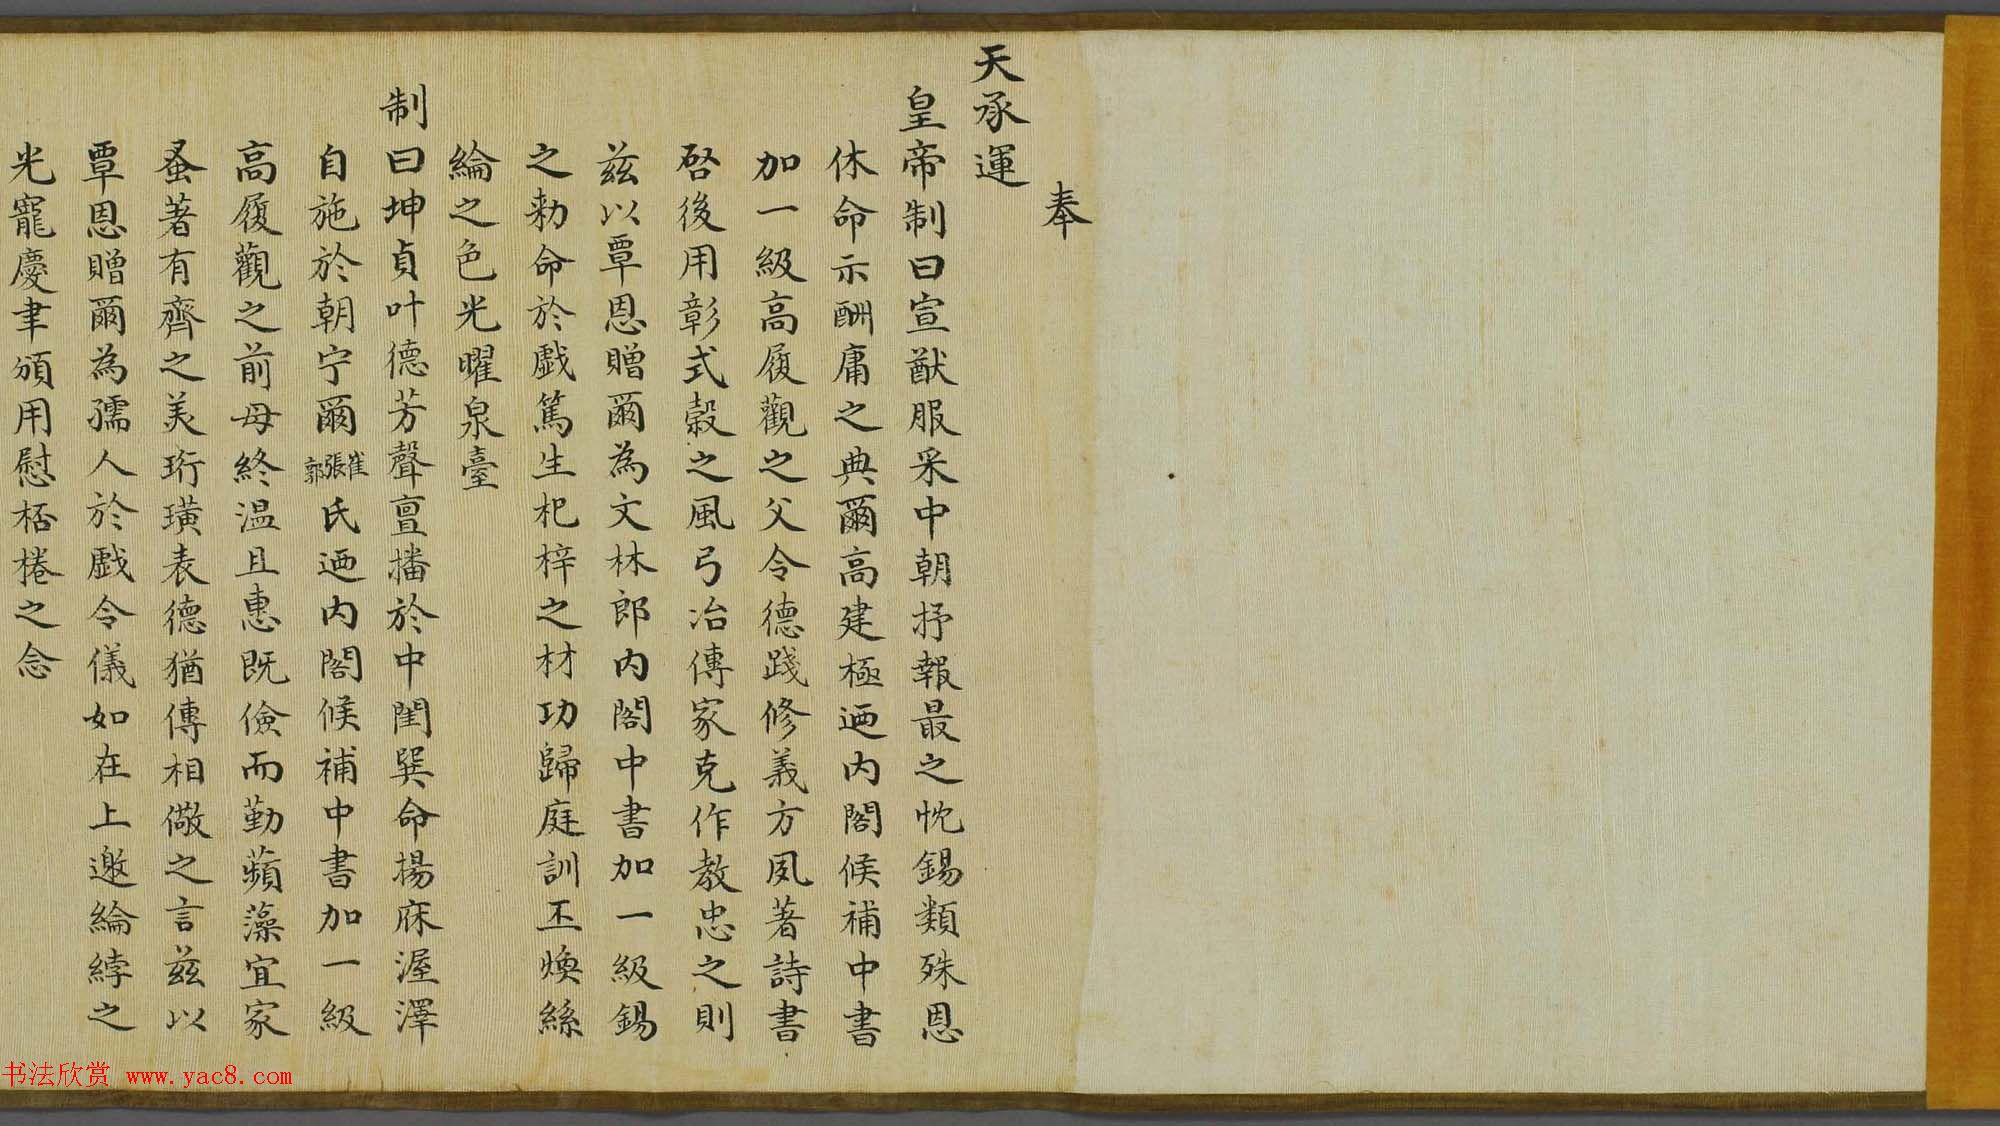 奉
天承運
皇帝制曰宣猷服采中朝抒報最之忱錫類殊恩
休命示酬庸之典爾高建極迺內閣候補中書
加一級高履觀之父令德踐修義方夙著詩書
啓後用彰式榖之風弓冶傳家克作教忠之則
兹以覃恩贈爾為文林郎內閣中書加一級錫
之勅命於戲篤生杞梓之材功歸庭訓丕煥絲
綸之色光曜泉臺
制曰坤貞叶德芳聲亶播於中閨巽命揚庥渥澤
自施於朝宁爾崔張郭氏迺內閣候補中書加一級
高履觀之前母終温且惠既儉而勤蘋藻宜家
蚤著有齊之美珩璜表德猶傳相儆之言兹以
覃恩贈爾為孺人於戲令儀如在上邀綸綍之
光寵慶聿頒用慰桮棬之念
书法欣赏 www.yac8.com